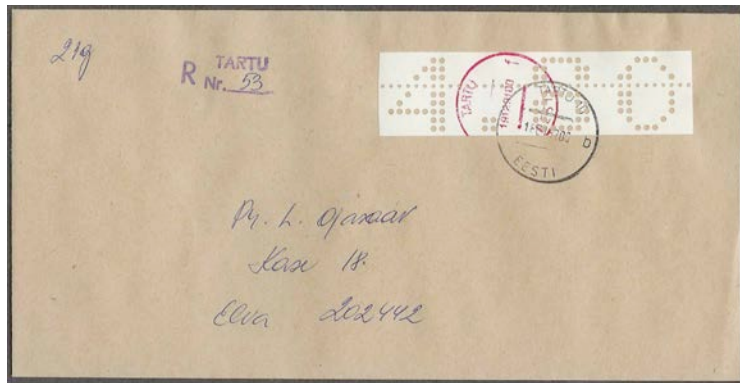 21g
TARTU
R Nr. 53
TARTU f
TARTU 10
D
EESTI
Pr. L. Ojasaar
Kase 18.
Elva 202442